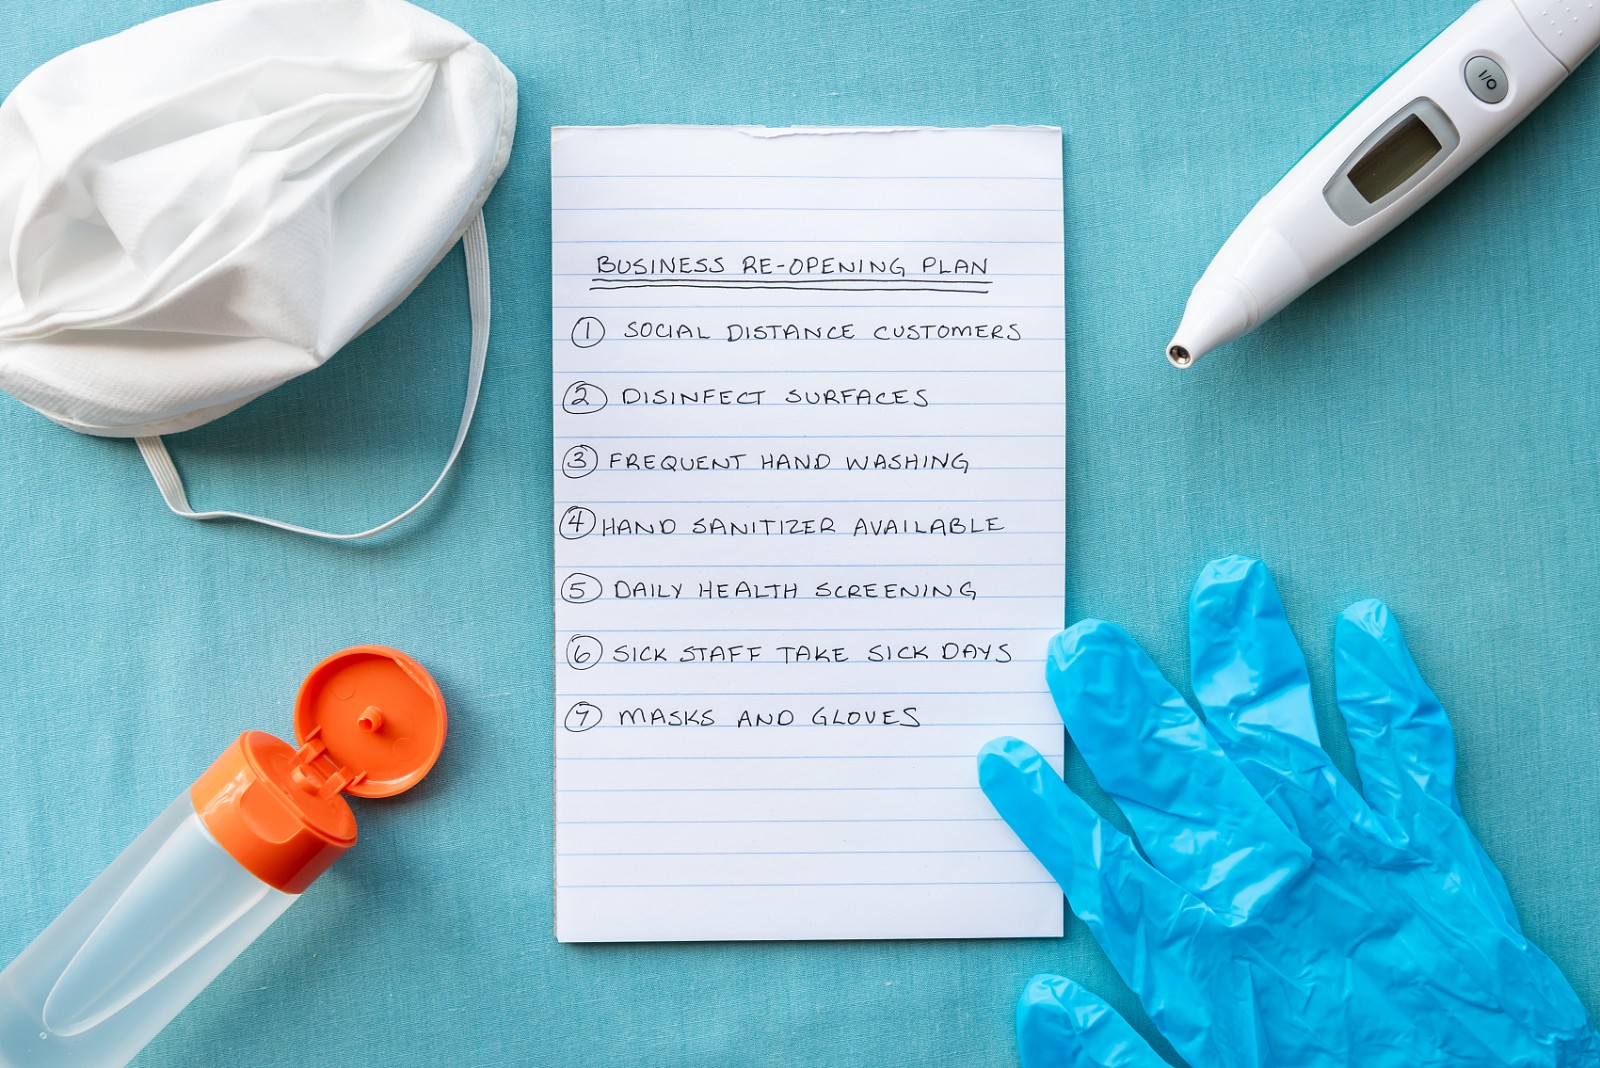 BUSINESS RE-OPENING PLAN
1 SOCIAL DISTANCE CUSTOMERS
2 DISINFECT SURFACES
3 FREQUENT HAND WASHING
4 HAND SANITIZER AVAILABLE
5 DAILY HEALTH SCREENING
6 SICK STAFF TAKE SICK DAYS
7 MASKS AND GLOVES
I/O